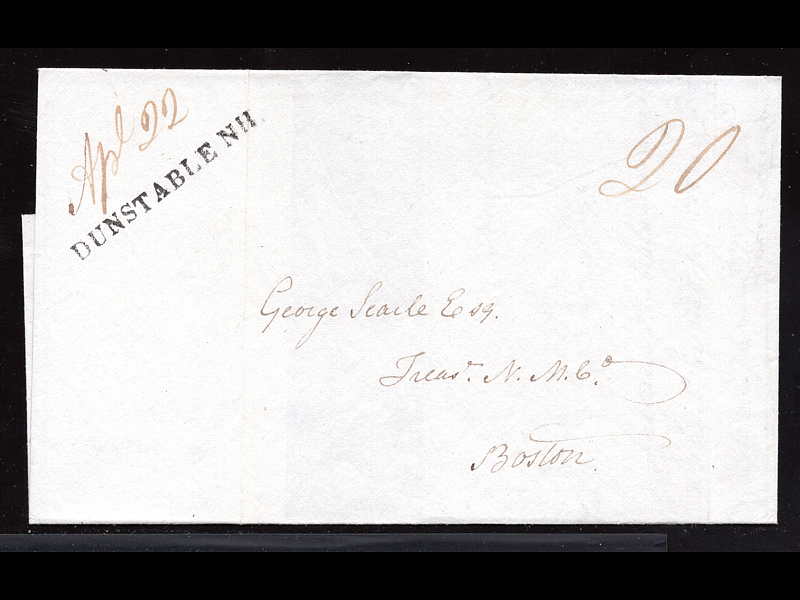 Apl 22
DUNSTABLE NH.
20
George Searle Esq.
Treasr. N. M. Co.
Boston.